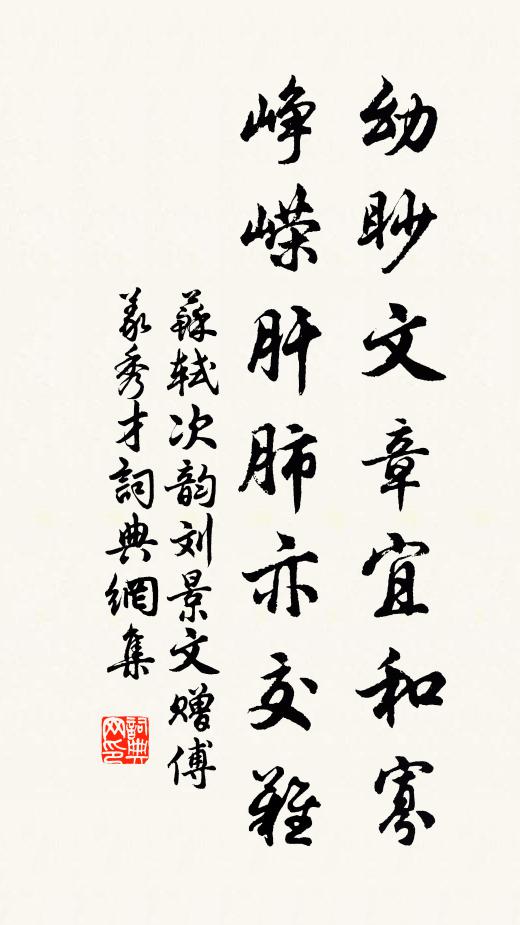 幼眇文章宜和寡
峥嵘肝肺亦交難
蘇轼次韵刘景文赠傅
羲秀才詞典網集
詞典网印